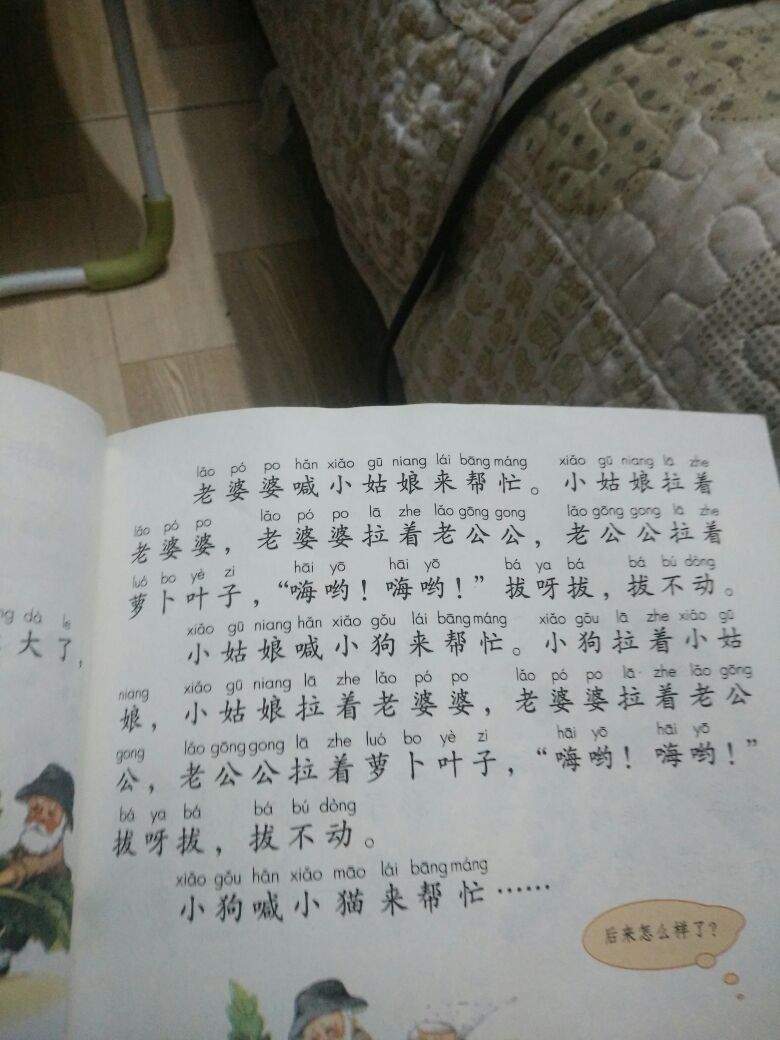 lǎo pó po hǎn xiǎo gū niang lái bāng máng xiǎo gū niang lā zhe
老婆婆喊小姑娘来帮忙。小姑娘拉着
lǎo pó po lǎo pó po lā zhe lǎo gōng gong lǎo gōng gong lā zhe
老婆婆，老婆婆拉着老公公，老公公拉着
luó bo yè zi hāi yō hāi yō bá ya bá bá bú dòng
萝卜叶子，“嗨哟！嗨哟！”拔呀拔，拔不动。
xiǎo gū niang hǎn xiǎo gǒu lái bāng máng xiǎo gǒu lā zhe xiǎo gū
小姑娘喊小狗来帮忙。小狗拉着小姑
niang xiǎo gū niang lā zhe lǎo pó po lǎo pó po lā zhe lǎo gōng
娘，小姑娘拉着老婆婆，老婆婆拉着老公
gong lǎo gōng gong lā zhe luó bo yè zi hāi yō hāi yō
公，老公公拉着萝卜叶子，“嗨哟！嗨哟！”
bá ya bá bá bú dòng
拔呀拔，拔不动。
xiǎo gǒu hǎn xiǎo māo lái bāng máng
小狗喊小猫来帮忙……
后来怎么样了？
dà le
大了，